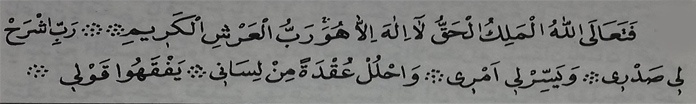 فَتَعَالَى اللّٰهُ الْمَلِكُ الْحَقُّ لَآ اِلٰهَ اِلَّا هُوَۚ رَبُّ الْعَرْشِ الْكَرِيمِ ۞ رَبِّ اشْرَحْ
لِى صَدْرِى ۞ وَيَسِّرْ لِى اَمْرِى ۞ وَاحْلُلْ عُقْدَةً مِنْ لِسَانِى ۞ يَفْقَهُوا قَوْلِى ۞